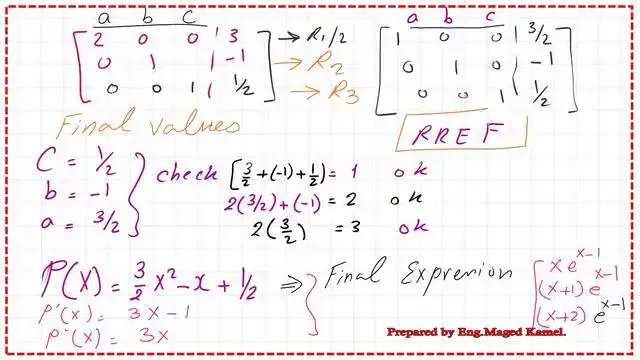 a b c
a b c
2 0 0 | 3 → R1/2
1 0 0 | 3/2
0 1 | -1 → R2
0 1 0 | -1
0 0 1 | 1/2 → R3
0 0 1 | 1/2
Final values
RREF
C = 1/2
b = -1
a = 3/2
check [3/2 + (-1) + 1/2] = 1 ok
2(3/2) + (-1) = 2 ok
2(3/2) = 3 ok
P(X) = 3/2 x² - x + 1/2 ⇒ Final Expression
P'(X) = 3X - 1
P''(X) = 3X
x e^x-1
(x+1) e^x-1
(x+2) e^x-1
Prepared by Eng.Maged Kamel.